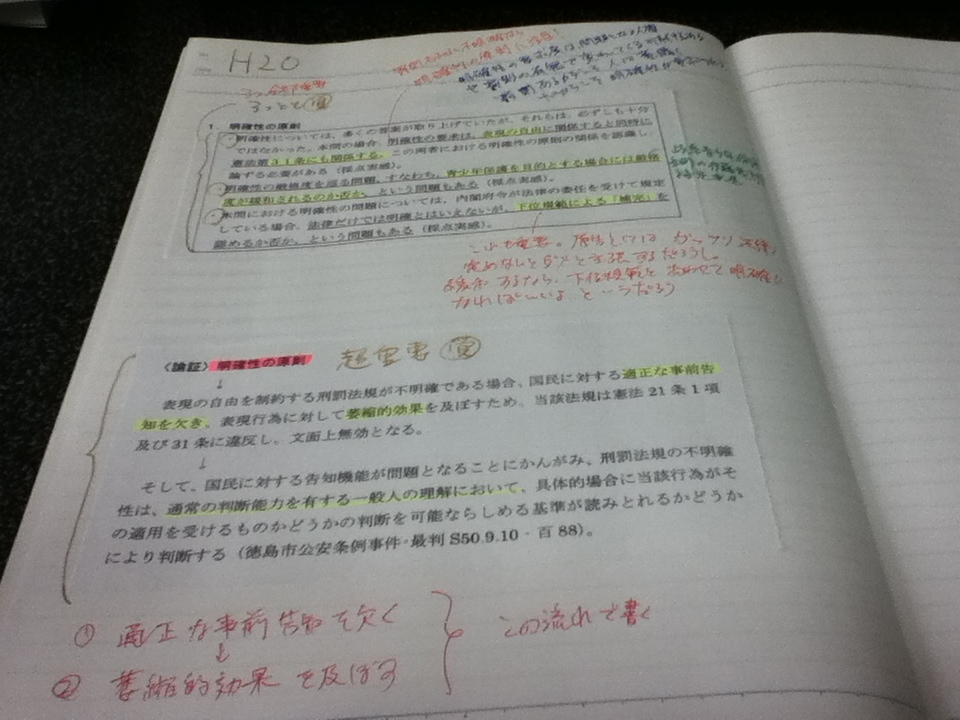 H20
1. 明確性の原則
・明確性については、多くの答案が取り上げていたが、それらは、必ずしも十分
ではなかった。本問の場合、明確性の要求は、表現の自由に関係すると同時に
憲法第31条にも関係する。この両者における明確性の原則の関係を認識し、
論ずる必要がある（採点実感）。
・明確性の厳格度を巡る問題、すなわち、青少年保護を目的とする場合には厳格
度が緩和されるのか否か、という問題もある（採点実感）。
・本問における明確性の問題については、内閣府令が法律の委任を受けて規定
している場合、法律だけでは明確とはいえないが、下位規範による「補完」を
認めるか否か、という問題もある（採点実感）。
これも重要。原告としては
定めないとダメと主張するだろうし。
下位規範と あわせて 明確に
なればいいよ というだろう
〈論証〉明確性の原則
超重要
↓
表現の自由を制約する刑罰法規が不明確である場合、国民に対する適正な事前告
知を欠き、表現行為に対して萎縮的効果を及ぼすため、当該法規は憲法21条1項
及び31条に違反し、文面上無効となる。
↓
そして、国民に対する告知機能が問題となることにかんがみ、刑罰法規の不明確
性は、通常の判断能力を有する一般人の理解において、具体的場合に当該行為がそ
の適用を受けるものかどうかの判断を可能ならしめる基準が読みとれるかどうか
により判断する（徳島市公安条例事件・最判S50.9.10・百88）。
① 適正な事前告知を欠く
↓
② 萎縮的効果を及ぼす
この流れで書く